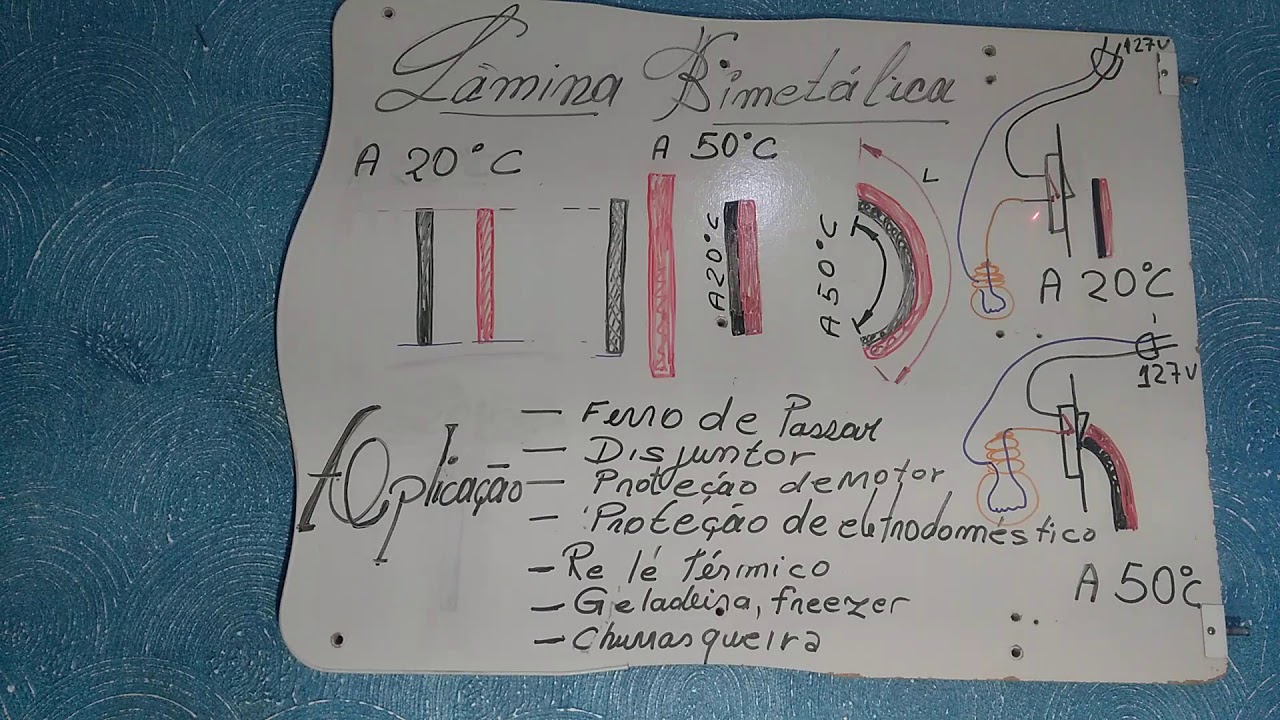 Lâmina Bimetálica
A 20°C
A 50°C
A 20°C
A 50°C
L
127V
A 20°C
127V
A 50°C
Aplicação
— Ferro de Passar
— Disjuntor
— Proteção de motor
— Proteção de eletrodoméstico
— Re lé térmico
— Geladeira, freezer
— Churrasqueira